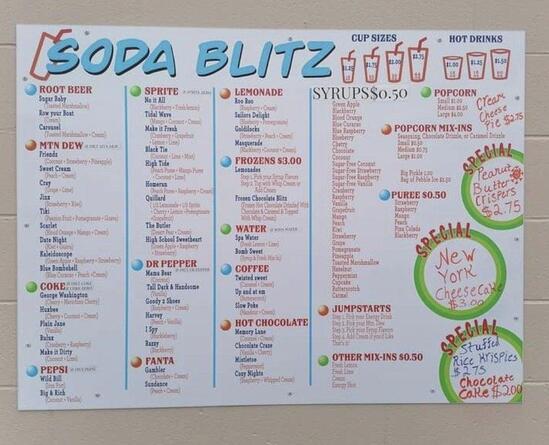 SODA BLITZ
CUP SIZES
HOT DRINKS
$1.25
$1.50
$1.75
$1.00
$1.25
$1.50
ROOT BEER
Sugar Baby
(Toasted Marshmallow)
Row your Boat
(Cream)
Carousel
(Toasted Marshmallow • Cream)
MTN DEW
Friends
(Coconut • Strawberry • Pineapple)
Sweet Cream
(Peach • Cream)
Crey
(Grape • Lime)
Jinx
(Strawberry • Kiwi)
Tiki
(Passion Fruit • Pomegranate • Guava)
Scarlet
(Blood Orange • Mango • Cream)
Date Night
(Kiwi • Guava)
Kaleidoscope
(Green Apple • Raspberry • Strawberry)
Blue Bombshell
(Blue Curacao • Peach • Cream)
COKE
George Washington
(Cherry • Maraschino Cherry)
Huxbee
(Cherry • Coconut • Cream)
Plain Jane
(Vanilla)
Rufus
(Cranberry • Raspberry)
Make it Dirty
(Coconut • Lime)
PEPSI
Wild Bill
Big & Rich
(Coconut • Vanilla)
SPRITE
No it All
(Blackberry • Fresh lemon)
Tidal Wave
(Mango • Coconut • Cream)
Make it Fresh
(Cranberry • Grapefruit
• Lemon • Lime)
Black Tie
(Coconut • Lime • Mint)
High Tide
(Peach Puree • Mango Puree
• Coconut • Lime)
Homerun
(Peach Puree • Raspberry • Cream)
Quillard
The Butler
(Desert Pear • Cream)
High School Sweetheart
(Green Apple • Blackberry •
Strawberry)
DR PEPPER
Mama Bear
(Coconut)
Tall Dark & Handsome
(Vanilla)
Goody 2 Shoes
(Raspberry • Cream)
Harvey
(Peach • Vanilla)
I Spy
(Huckleberry)
Razzy
(Blackberry)
FANTA
Gambler
(Chocolate • Cream)
Sundance
(Peach • Coconut • Cream)
LEMONADE
Roo Roo
(Raspberry • Cream)
Sailors Delight
(Huckleberry • Pomegranate)
Goldilocks
(Strawberry • Peach • Cream)
Masquerade
(Blackberry • Coconut • Cream)
FROZENS $3.00
Lemonades
Step 1. Pick your Syrup Flavors
Step 2. Top with Whip Cream or
Add Cream
Frozen Chocolate Blitz
(Frozen Hot Chocolate Drizzled With
Chocolate & Caramel & Topped
With Whip Cream)
WATER
Spa Water
(Fresh Lemon • Lime)
Bomb Water
(Sweet Syrup & Fresh Mix in)
COFFEE
Twisted sweet
(Caramel • Cream)
Up and at em
(Butterscotch)
Slow Poke
(Mandarin • Cream)
HOT CHOCOLATE
Memory Lane
(Coconut • Cream)
Chocolate Craze
(Vanilla • Cherry)
Mistletoe
(Peppermint)
Cozy Nights
(Raspberry • Whipped Cream)
SYRUPS $0.50
Green Apple
Blackberry
Blood Orange
Blue Curacao
Blue Raspberry
Blueberry
Cherry
Chocolate
Coconut
Sugar-Free Coconut
Sugar-Free Strawberry
Sugar-Free Raspberry
Sugar-Free Vanilla
Cranberry
Raspberry
Vanilla
Grapefruit
Mango
Peach
Kiwi
Strawberry
Grape
Pomegranate
Pineapple
Toasted Marshmallow
Hazelnut
Peppermint
Cupcake
Butterscotch
Caramel
JUMPSTARTS
Step 1. Pick your Energy Drink
Step 2. Pick your Mtn Dew
Step 3. Pick your Syrup Flavors
Step 4. Add Cream if you'd Like
Thats it!
OTHER MIX-INS $0.50
Fresh Lemon
Fresh Lime
Cream
Energy Shot
POPCORN
Small $1.00
Medium $2.50
Large $4.00
POPCORN MIX-INS
Seasoning, Chocolate Drizzle, or Caramel Drizzle
Small $0.50
Medium $0.75
Large $1.00
Big Pickle 1.00
Bag of Pebble Ice $1.50
PUREE $0.50
Strawberry
Raspberry
Mango
Peach
Pina Colada
Blackberry
Cream
Cheese
Pie $2.75
SPECIAL
Peanut
Butter
Crispers
$2.75
SPECIAL
New
York
Cheesecake
$3.00
SPECIAL
Stuffed
Rice Krispies
$2.75
Chocolate
Cake $2.00